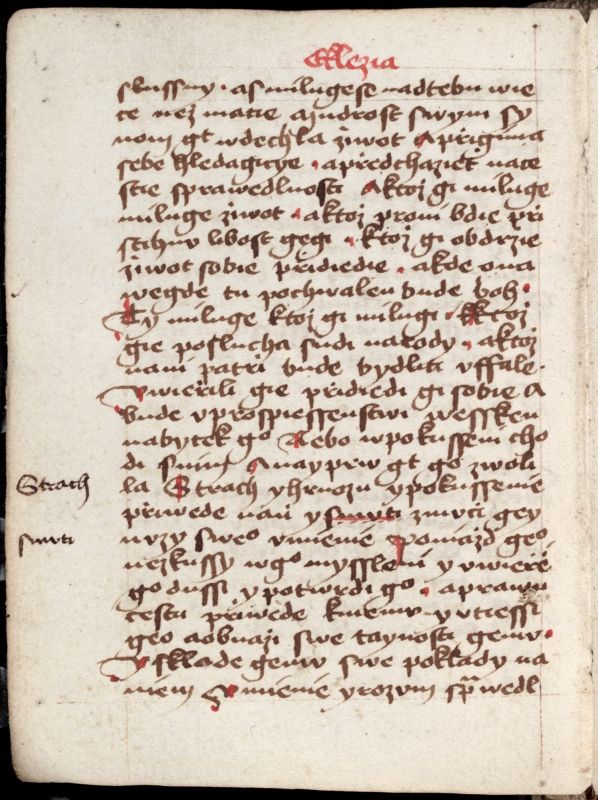 Ekklezia
slussny · as milugese nadtebu wie
ce nez matie a mudrost swym sy
nom gt wdechla ziwot A prigima
sebe hledagicye · a predchaziet nace
stie sprawedlnosti A ktoz gi miluge
miluge ziwot · a ktoz prom bdie pri
stihnu libost gegi · ktoz gi obdrzie
ziwot sobie pridiedie · a kde ona
wegde tu pochwalen bude boh ·
Ty miluge ktoz gi milugi · Ktoz
gie poslucha sudi narody · a ktoz
nani patri bude bydliti vffale ·
Vwierili gie pridiedi gi sobie A
bude vprospiessenstwi wessken
nabytek go Nebo wpokusseni cho
di snim A nayprw gt go zwoli
la Strach yhruozu ypokussenie
priwede nan y smrti zmuci gey
wzy sweo vmienie Poniazd geo
nezkussy wgo mysslení y vwierē
go dussi y potwrdi go · a prawu
cestu priwede knemu y vtiessi
geo a obnazi swe taynosti gemu ·
Y sklade gemu swe poklady na
niem Vmienie y rozum spwedl
Strach
smrti